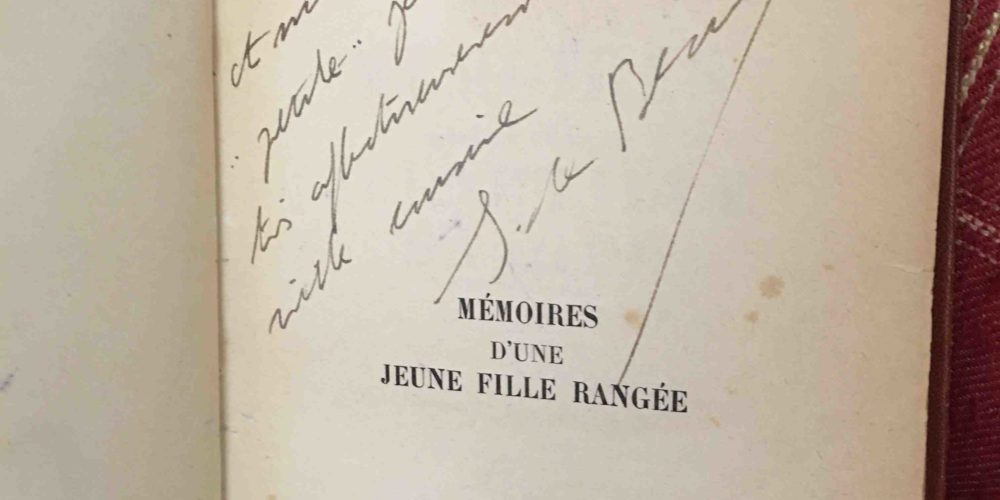 et
"petite" je
très affectueusement
vieille cousine
S. de Beau
MÉMOIRES
D'UNE
JEUNE FILLE RANGÉE